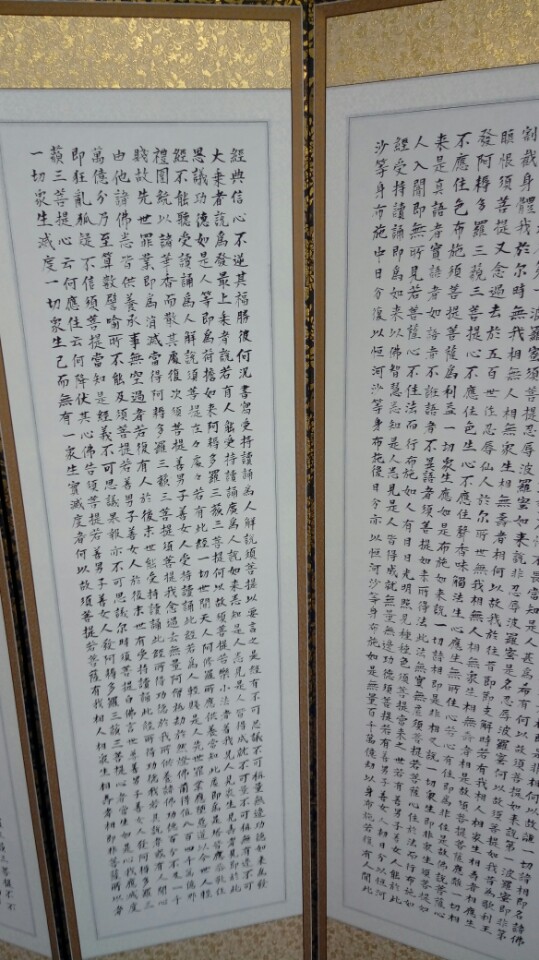 割截身體我於尔時無我相無人相無衆生相無壽者相何以故我於往昔節節支解時若有我相人相衆生相壽者相應生
瞋恨須菩提又念過去於五百世作忍辱仙人於尔所世無我相無人相無衆生相無壽者相是故須菩提菩薩應離一切相
發阿耨多羅三藐三菩提心不應住色生心不應住聲香味觸法生心應生無所住心若心有住即爲非住是故佛說菩薩心
不應住色布施須菩提菩薩爲利益一切衆生應如是布施如來說一切諸相即是非相又說一切衆生即非衆生須菩提如
來是真語者實語者如語者不誑語者不異語者須菩提如來所得法此法無實無虛須菩提若菩薩心住於法而行布施如
人入闇即無所見若菩薩心不住法而行布施如人有目日光明照見種種色須菩提當來之世若有善男子善女人能於此
經受持讀誦即爲如來以佛智慧悉知是人悉見是人皆得成就無量無邊功德須菩提若有善男子善女人初日分以恒河
沙等身布施中日分復以恒河沙等身布施後日分亦以恒河沙等身布施如是無量百千萬億劫以身布施若復有人聞此
經典信心不逆其福勝彼何況書寫受持讀誦爲人解說須菩提以要言之是經有不可思議不可稱量無邊功德如來爲發
大乘者說爲發最上乘者說若有人能受持讀誦廣爲人說如來悉知是人悉見是人皆得成就不可量不可稱無有邊不可
思議功德如是人等即爲荷擔如來阿耨多羅三藐三菩提何以故須菩提若樂小法者著我見人見衆生見壽者見即於此
經不能聽受讀誦爲人解說須菩提在在處處若有此經一切世間天人阿修羅所應供養當知此處即爲是塔皆應恭敬作
禮圍繞以諸華香而散其處復次須菩提善男子善女人受持讀誦此經若爲人輕賤是人先世罪業應墮惡道以今世人輕
賤故先世罪業即爲消滅當得阿耨多羅三藐三菩提須菩提我念過去無量阿僧祇劫於然燈佛前得值八百四千萬億那
由他諸佛悉皆供養承事無空過者若復有人於後末世能受持讀誦此經所得功德於我所供養諸佛功德百分不及一千
萬億分乃至算數譬喻所不能及須菩提若善男子善女人於後末世有受持讀誦此經所得功德我若具說者或有人聞心
即狂亂狐疑不信須菩提當知是經義不可思議果報亦不可思議尔時須菩提白佛言世尊善男子善女人發阿耨多羅三
藐三菩提心云何應住云何降伏其心佛告須菩提若善男子善女人發阿耨多羅三藐三菩提心者當生如是心我應滅度
一切衆生滅度一切衆生已而無有一衆生實滅度者何以故須菩提若菩薩有我相人相衆生相壽者相即非菩薩所以者